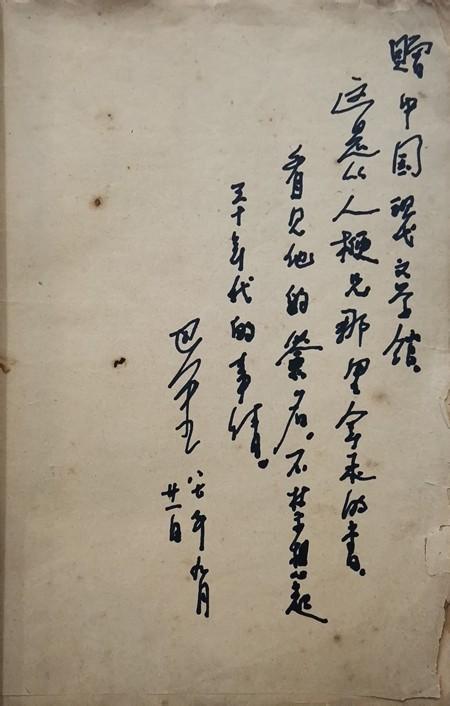 赠中国现代文学馆。
这是从人楩兄那里拿来的书。
看见他的签名。不禁想起
三十年代的事情。
巴金
八七年九月
廿一日